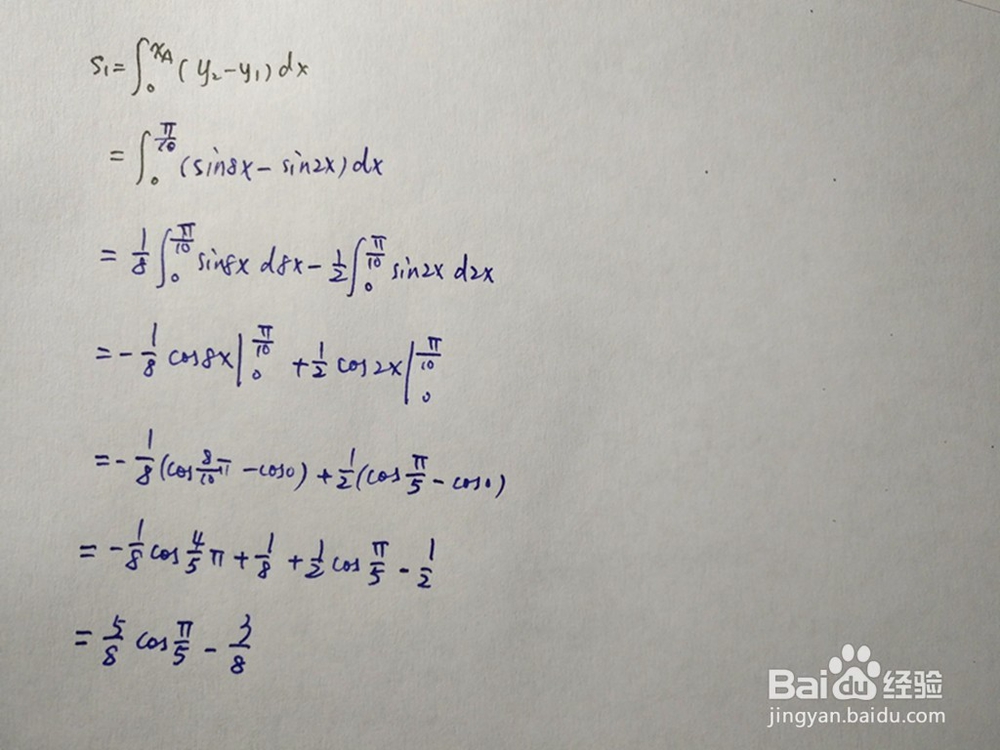 S₁=∫₀^{x_A}(y₂-y₁)dx
=∫₀^{π/10}(sin8x-sin2x)dx
=1/8∫₀^{π/10}sin8x d8x-1/2∫₀^{π/10}sin2x d2x
=-1/8 cos8x|₀^{π/10}+1/2 cos2x|₀^{π/10}
=-1/8(cos8/10π-cos0)+1/2(cosπ/5-cos0)
=-1/8cos4/5π+1/8+1/2cosπ/5-1/2
=5/8cosπ/5-3/8
Baidu经验
jingyan.baidu.com